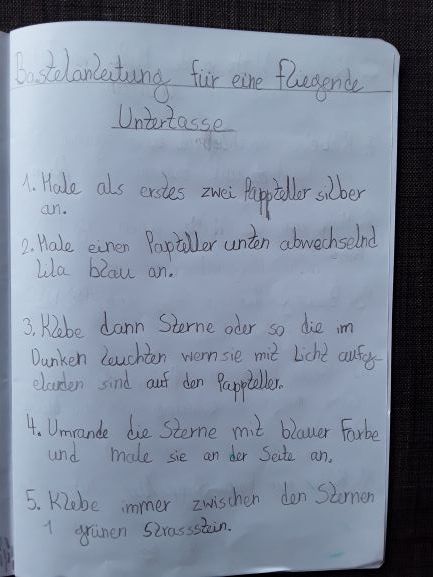 Bastelanleitung für eine fliegende
Untertasse
1. Male als erstes zwei Pappteller silber
an.
2. Male einen Papteller unten abwechselnd
lila blau an.
3. Klebe dann Sterne oder so die im
Dunken leuchten wenn sie mit Licht aufg-
eladen sind auf den Pappteller.
4. Umrande die Sterne mit blauer Farbe
und male sie an der Seite an.
5. Klebe immer zwischen den Sternen
1 grünen Strassstein.